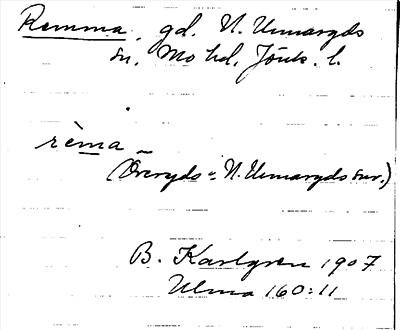 Remma, gd. N. Unnaryds
sn, Mo hd. Jönk. l.
rèma ~
(Öreryds o. N. Unnaryds snr.)
B. Karlgren 1907
Ulma 160:11